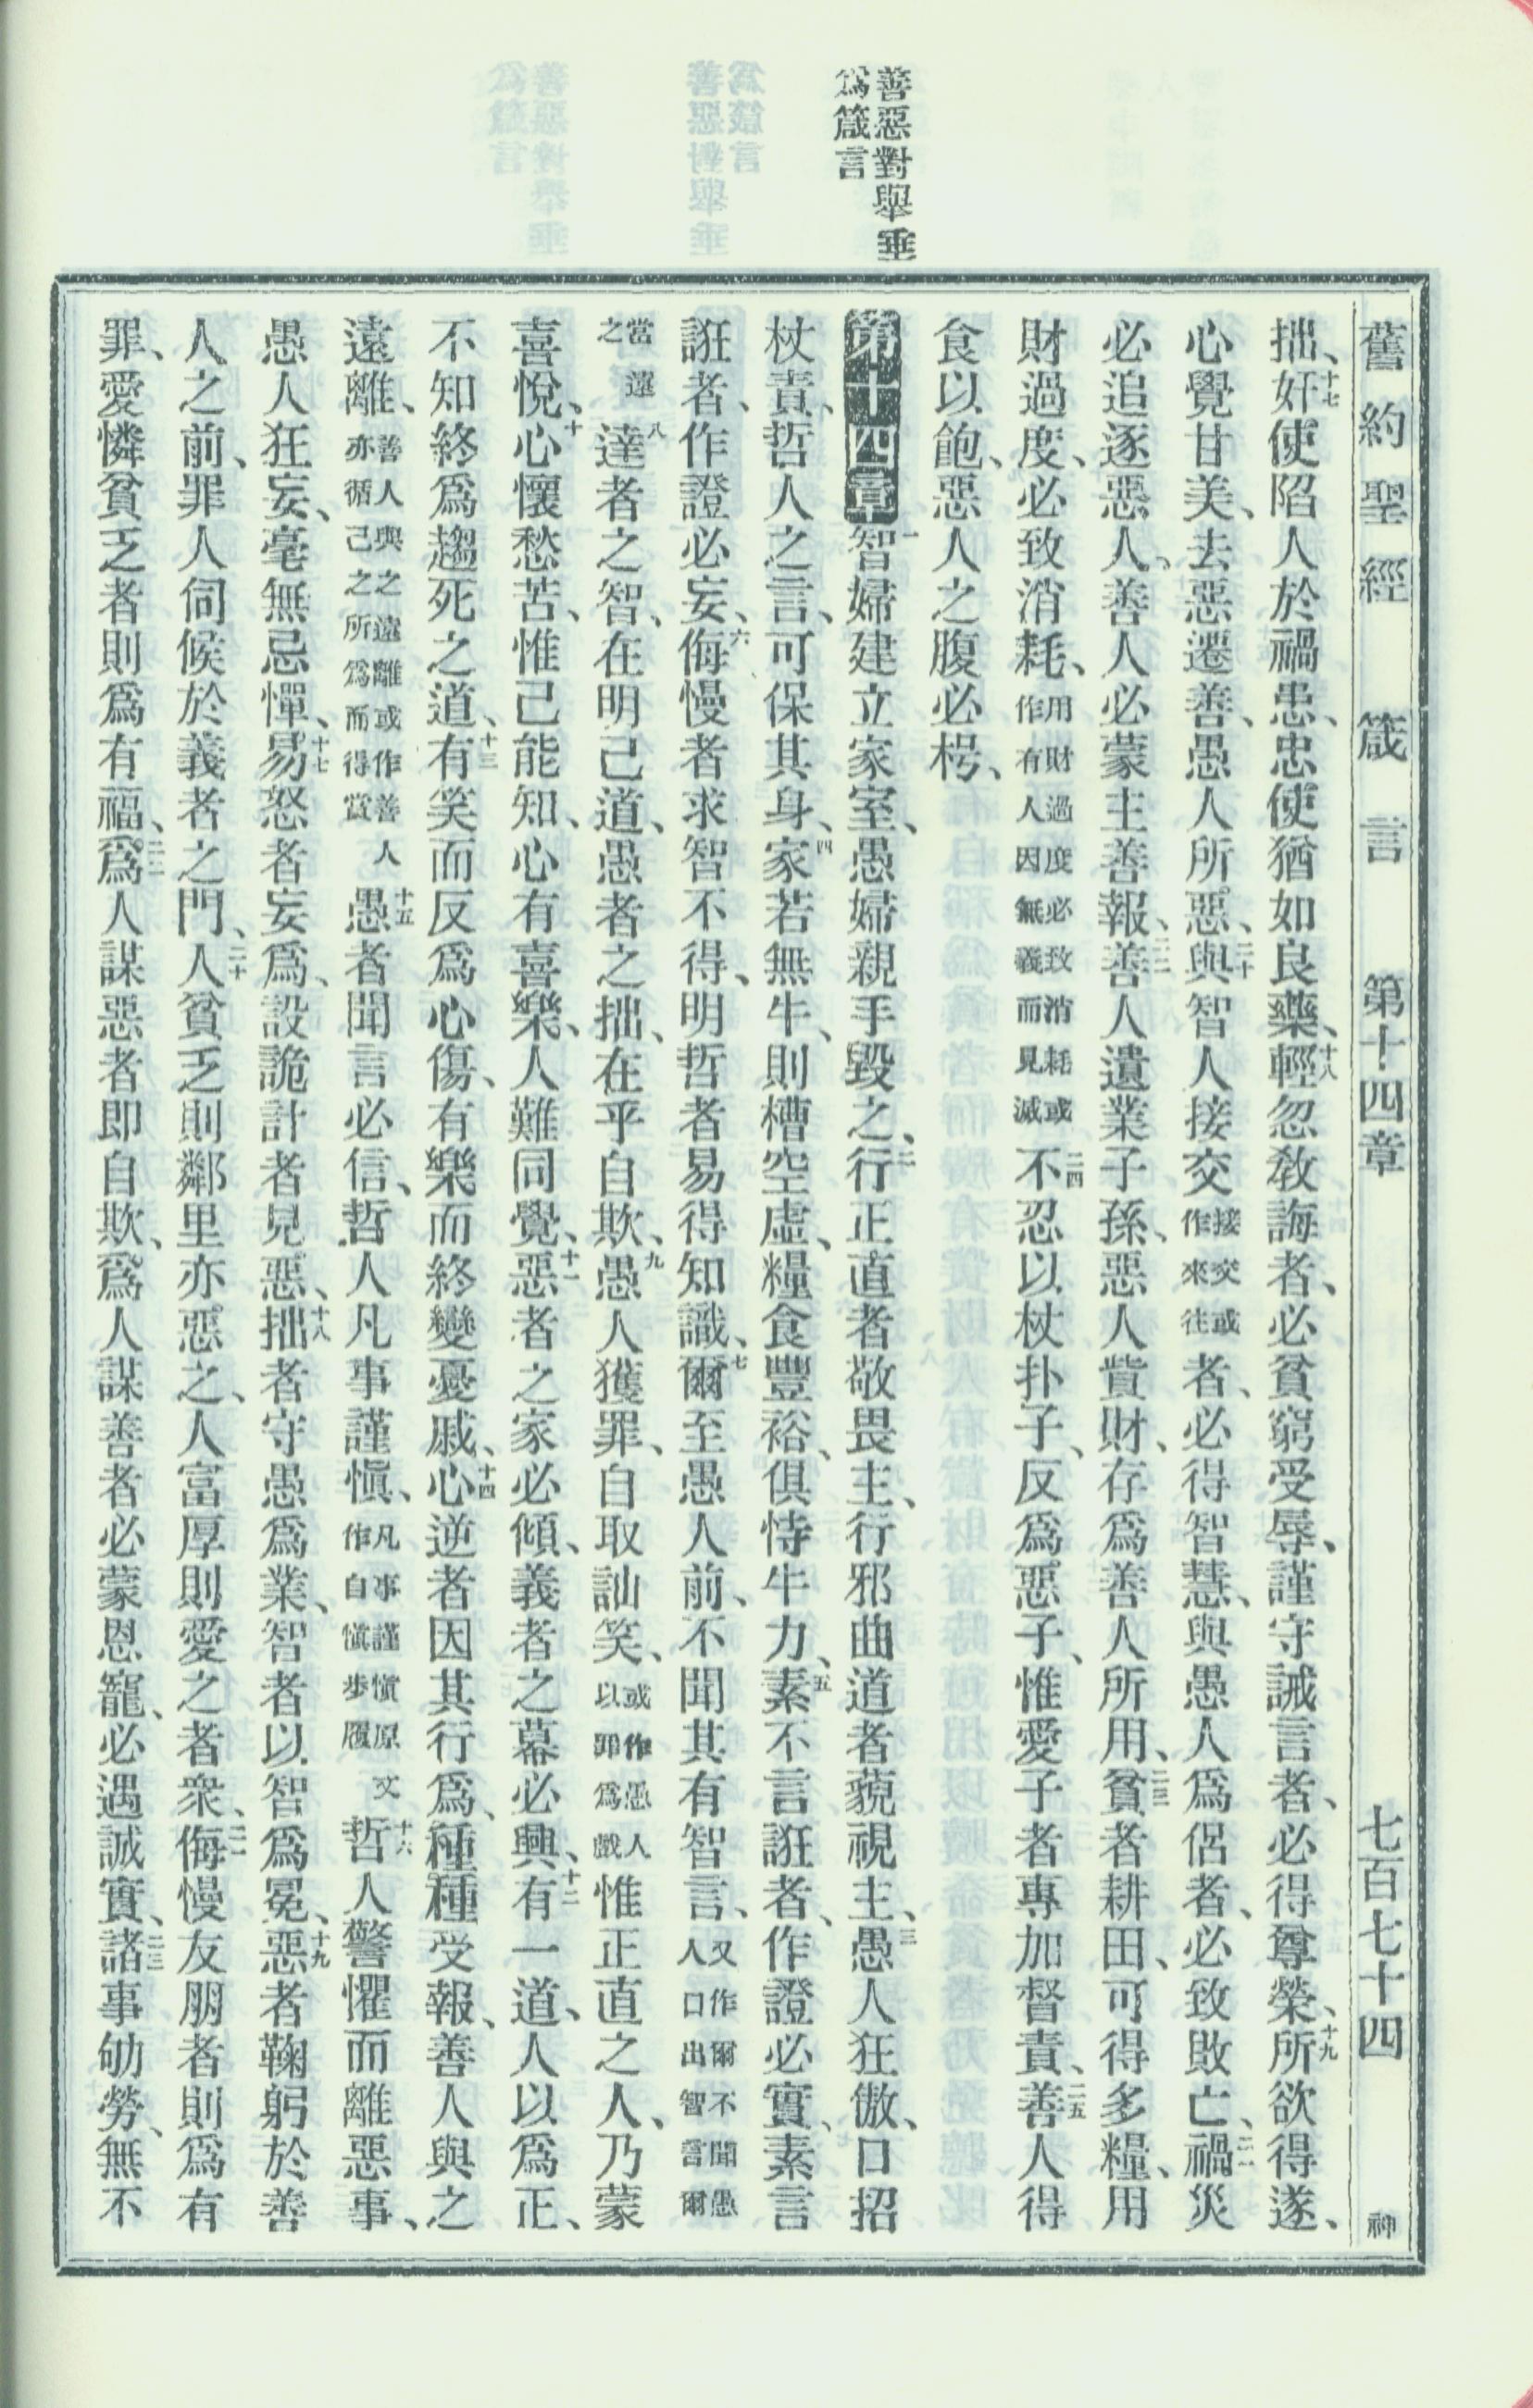 舊約聖經 箴言 第十四章 七百七十四 神
善惡對舉垂
爲箴言
拙、十七奸使陷人於禍患、忠使猶如良藥、十八輕忽敎誨者、必貧窮受辱、謹守誡言者、必得尊榮、十九所欲得遂、
心覺甘美、去惡遷善、愚人所惡、二十與智人接交接交或作來往者、必得智慧、與愚人爲侶者、必致敗亡、二一禍災
必追逐惡人、善人必蒙主善報、二二善人遺業子孫、惡人貲財、存爲善人所用、二三貧者耕田、可得多糧、用
財過度、必致消耗、用財過度必致消耗或作有人因無義而見滅二四不忍以杖扑子、反爲惡子、惟愛子者專加督責、二五善人得
食以飽、惡人之腹必枵、
第十四章一智婦建立家室、愚婦親手毀之、二行正直者敬畏主、行邪曲道者藐視主、三愚人狂傲、口招
杖責、哲人之言、可保其身、四家若無牛、則槽空虛、糧食豐裕、俱恃牛力、五素不言誑者、作證必實、素言
誑者、作證必妄、六侮慢者求智不得、明哲者易得知識、七爾至愚人前、不聞其有智言、又作爾不聞愚人口出智言爾
當遠之八達者之智、在明己道、愚者之拙、在乎自欺、九愚人獲罪、自取訕笑、或作愚人以罪爲戲惟正直之人、乃蒙
喜悅、十心懷愁苦、惟己能知、心有喜樂、人難同覺、十一惡者之家必傾、義者之幕必興、十二有一道、人以爲正、
不知終爲趨死之道、十三有笑而反爲心傷、有樂而終變憂戚、十四心逆者因其行爲、種種受報、善人與之
遠離、善人與之遠離或作善人亦循己之所爲而得賞十五愚者聞言必信、哲人凡事謹愼、凡事謹愼原文作自愼步履十六哲人警懼而離惡事、
愚人狂妄、毫無忌憚、十七易怒者妄爲、設詭計者見惡、十八拙者守愚爲業、智者以智爲冕、十九惡者鞠躬於善
人之前、罪人伺候於義者之門、二十人貧乏則鄰里亦惡之、人富厚則愛之者衆、二一侮慢友朋者則爲有
罪、愛憐貧乏者則爲有福、二二爲人謀惡者卽自欺、爲人謀善者必蒙恩寵、必遇誠實、二三諸事劬勞、無不